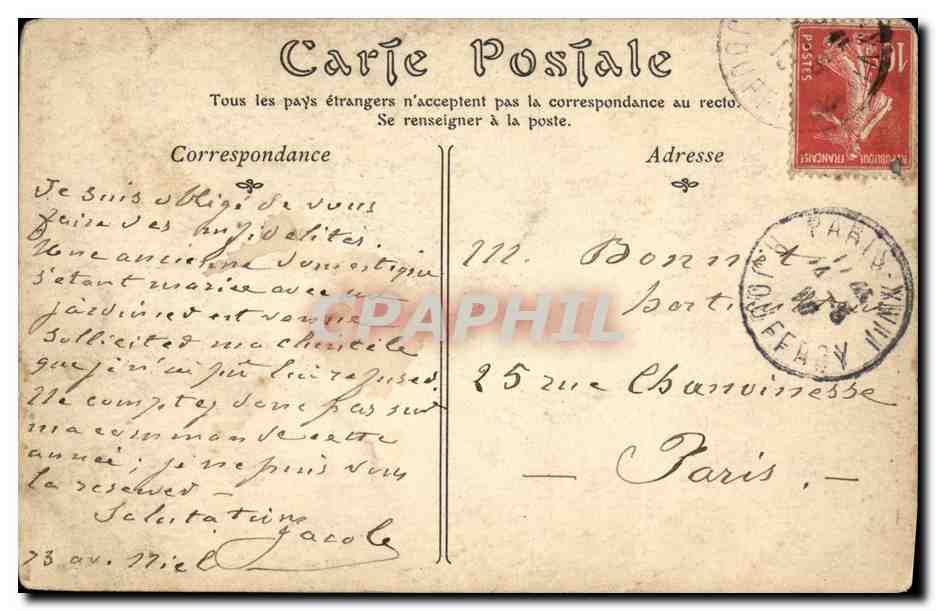 Carte Postale
Tous les pays étrangers n'acceptent pas la correspondance au recto.
Se renseigner à la poste.
Correspondance
Adresse
Je suis obligé de vous
faire des infidelités.
Une ancienne domestique
s'etant mariée avec un
jardinier est venue
solliciter ma clientèle
que je n'ai pu lui refuser.
Ne comptez donc pas sur
ma commande cette
année ; je ne puis vous
la reserver –
Salutation
Jacole
73 av. Niel
M. Bonnet
horticulteur
25 rue Chanoinesse
– Paris. –
10
POSTES
REPUBLIQUE FRANÇAISE
PARIS-XXVIII
R. JOUFFROY
CPAPHIL